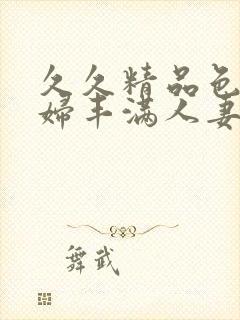 久久精品色
婦丰满人妻
舞武